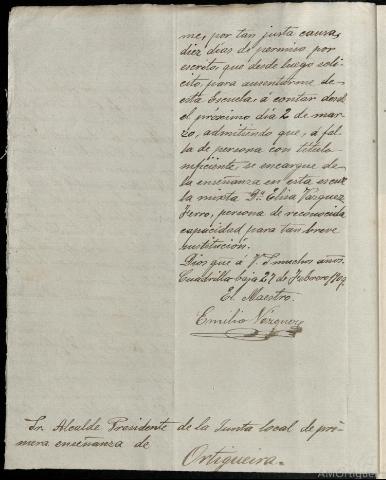 me, por tan justa causa,
diez dias de permiso por
escrito, que desde luego soli-
cito, para ausentarme de
esta Escuela, á contar desde
el próximo dia 2 de mar-
zo, admitiendo que, á fal-
ta de persona con título
suficiente, se encargue de
la enseñanza en esta escue-
la mixta Dª. Elisa Vazquez
Ferro, persona de reconocida
capacidad para tan breve
sustitución.
Dios que á V. S muchos años.
Cuadrilla baja 27 de Febrero
El Maestro.
Emilio Vázquez
Sr. Alcalde Presidente de la Junta local de pri-
mera enseñanza de
Ortigueira.
AMOrtigueira